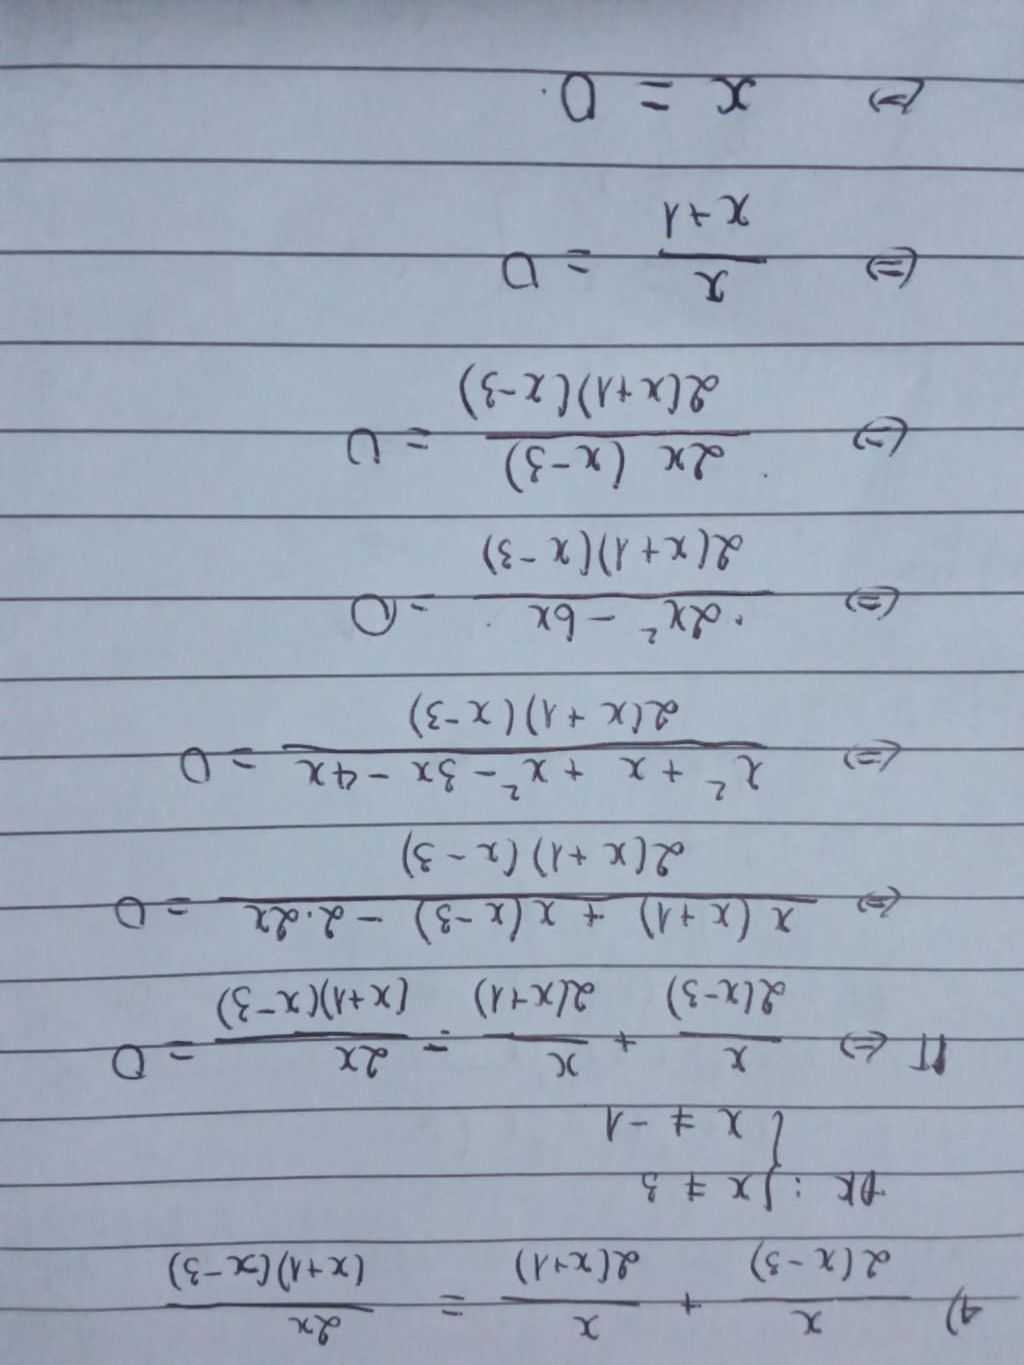 4) x/2(x-3) + x/2(x+1) = 2x/(x+1)(x-3)
ĐK : { x ≠ 3
{ x ≠ -1
PT (=) x/2(x-3) + x/2(x+1) - 2x/(x+1)(x-3) = 0
(=) x(x+1) + x(x-3) - 2.2x / 2(x+1)(x-3) = 0
(=) x² + x + x² - 3x - 4x / 2(x+1)(x-3) = 0
(=) 2x² - 6x / 2(x+1)(x-3) = 0
(=) 2x(x-3) / 2(x+1)(x-3) = 0
(=) x / x+1 = 0
(=) x = 0.